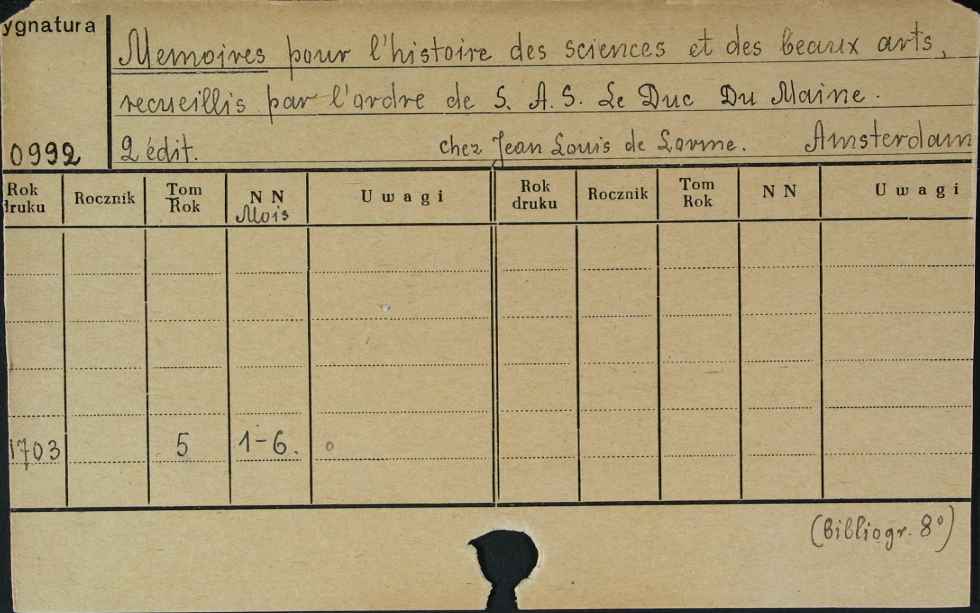 ygnatura
Memoires pour l'histoire des sciences et des beaux arts,
recueillis par l'ordre de S. A. S. Le Duc Du Maine.
0992 2 édit. chez Jean Louis de Lorme. Amsterdam
Rok druku Rocznik Tom Rok N N Mois Uwagi Rok druku Rocznik Tom Rok N N Uwagi
1703 5 1-6. o
(bibliogr. 8°)